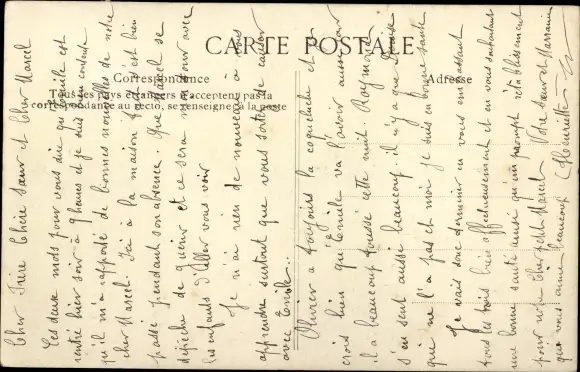 CARTE POSTALE
Correspondance
Tous les pays étrangers n'acceptent pas la
correspondance au recto, se renseigner à la poste
Adresse
Cher Frère Chère Sœur et Cher Marcel
Ces deux mots pour vous dire qu'Emile est
rentré hier soir à 9 heures et je suis bien contente
qu'il m'a apporté de bonnes nouvelles de notre
cher Marcel. Ici à la maison tout s'est bien
passé pendant son absence. Que Marcel se
dépêche de guérir et ce sera mon tour avec
les enfants d'aller vous voir
Je n'ai rien de nouveau à vous
apprendre surtout que vous sortez de causer
avec Emile.
Olivier a toujours la coqueluche et je
crois bien qu'Emile va l'avoir aussi car
il a beaucoup toussé cette nuit Raymond
s'en sent aussi beaucoup, il n'y a que Denise
qui ne l'a pas et moi je suis en bonne santé
Je vais donc terminer en vous embrassant
tous les trois bien affectueusement et en vous souhaitant
une bonne santé ainsi qu'un prompt rétablissement
pour notre cher petit Marcel Votre Sœur et Marraine
qui vous aime beaucoup Henriette